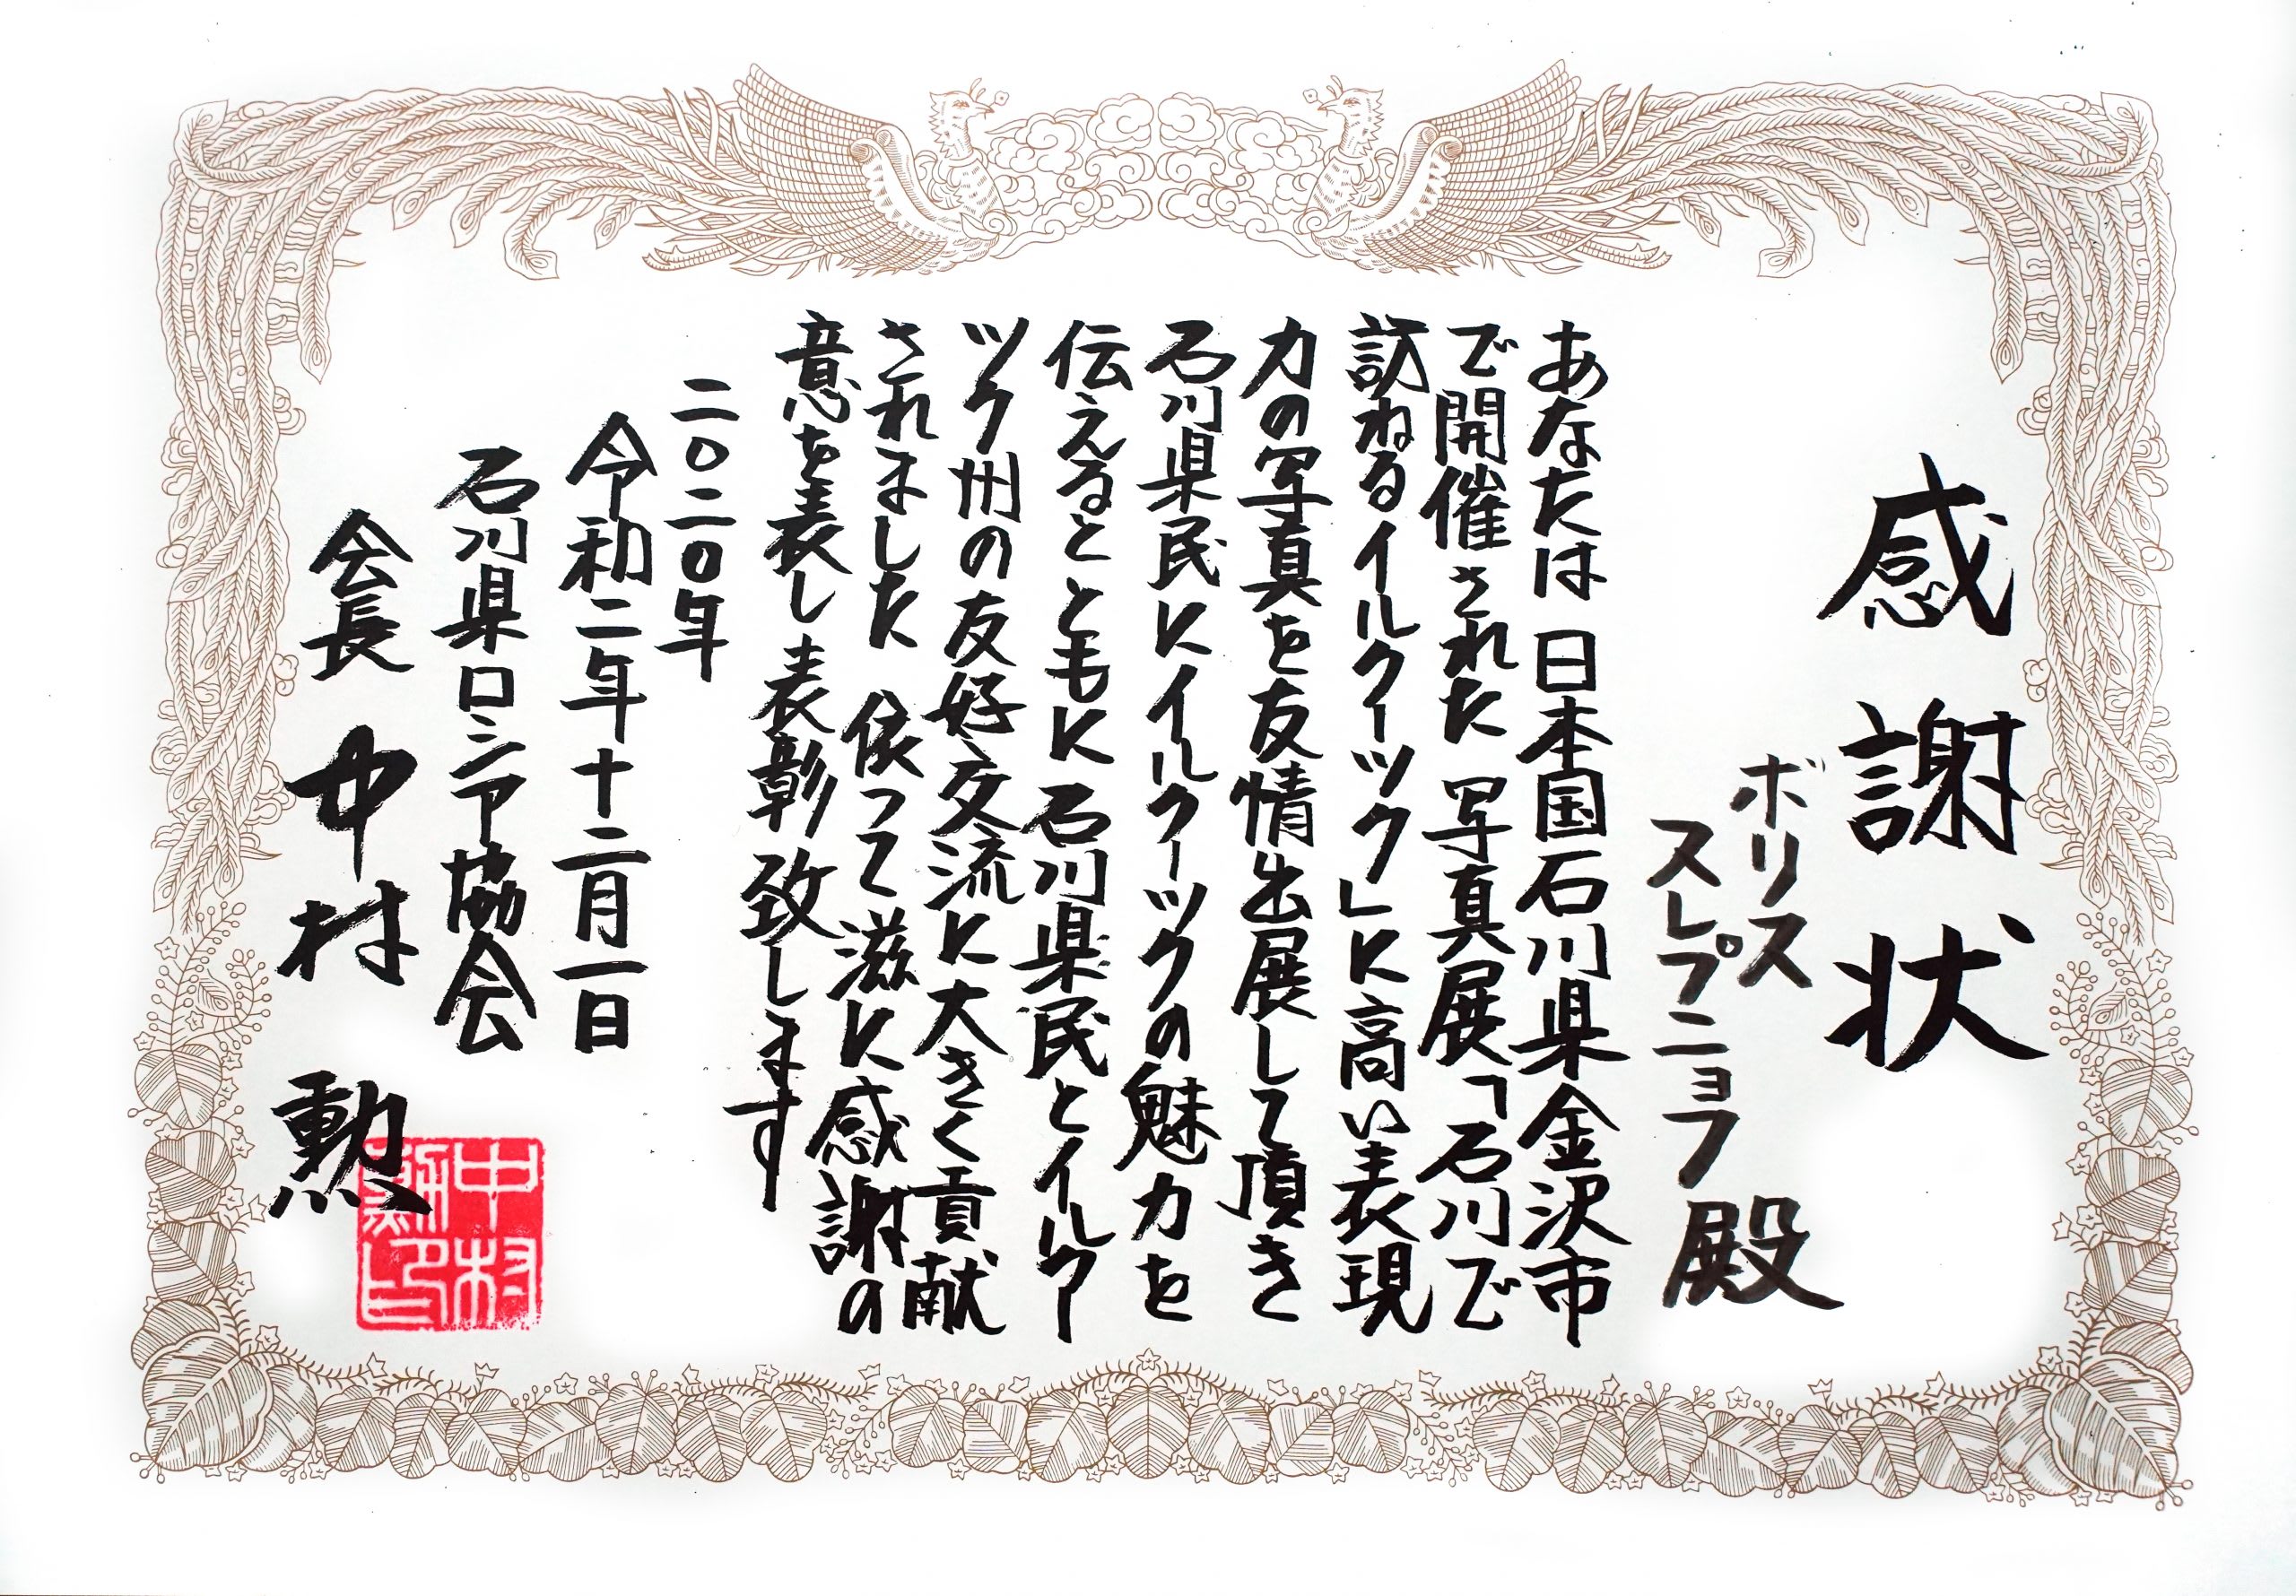 感謝状
ボリス
スレプニョフ 殿
あなたは日本国石川県金沢市
で開催された写真展「石川で
訪ねるイルクーツク」に高い表現
力の写真を友情出展して頂き
石川県民にイルクーツクの魅力を
伝えるとともに石川県民とイルクー
ツク州の友好交流に大きく貢献
されました 依って滋に感謝の
意を表し表彰致します
二〇二〇年
令和二年十二月一日
石川県ロシア協会
会長 中村 勲
中村
勲印